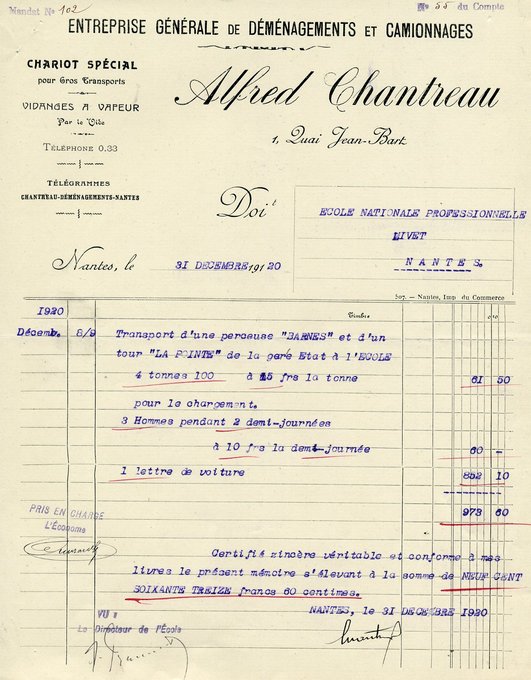 Mandat No 102
No 55 du Compte
ENTREPRISE GÉNÉRALE DE DÉMÉNAGEMENTS ET CAMIONNAGES
CHARIOT SPÉCIAL
pour Gros Transports
VIDANGES A VAPEUR
Par le Vide
TÉLÉPHONE 0.33
TÉLÉGRAMMES
CHANTREAU-DÉMÉNAGEMENTS-NANTES
Alfred Chantreau
1, Quai Jean-Bart
Doit
ECOLE NATIONALE PROFESSIONNELLE
LIVET
NANTES.
Nantes, le 31 DECEMBRE 19120
507. - Nantes, Imp. du Commerce
1920
Timbre 0,10
Décemb. 8/9 Transport d'une perceuse "BARNES" et d'un
tour "LA POINTE" de la gare Etat à l'ECOLE
4 tonnes 100 à 15 frs la tonne 61 50
pour le chargement.
3 Hommes pendant 2 demi-journées
à 10 frs la demi-journée 60 -
1 lettre de voiture 852 10
973 60
PRIS EN CHARGE
L'Économe
Certifié sincère véritable et conforme à mes
livres le présent mémoire s'élevant à la somme de NEUF CENT
SOIXANTE TREIZE francs 60 centimes.
NANTES, le 31 DECEMBRE 1920
VU :
Le Directeur de l'École